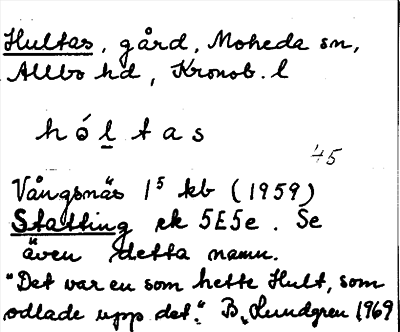 Hultas, gård, Moheda sn,
Allbo hd, Kronob. l
hó l t a s
45
Vångsnäs 1⁵ kb (1959)
Statting ek 5E5e. Se
även detta namn.
"Det var en som hette Hult, som
odlade upp det." B. Lundgren 1969